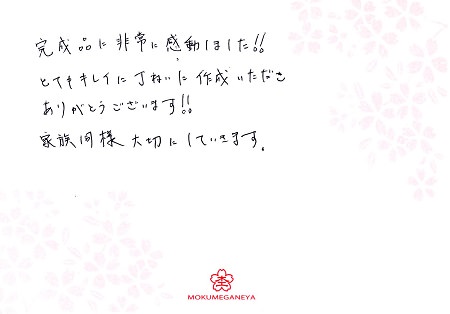 完成品に非常に感動しました!!
とてもキレイに丁ねいに作成いただき
ありがとうございます!!
家族同様大切にしていきます。
MOKUMEGANEYA